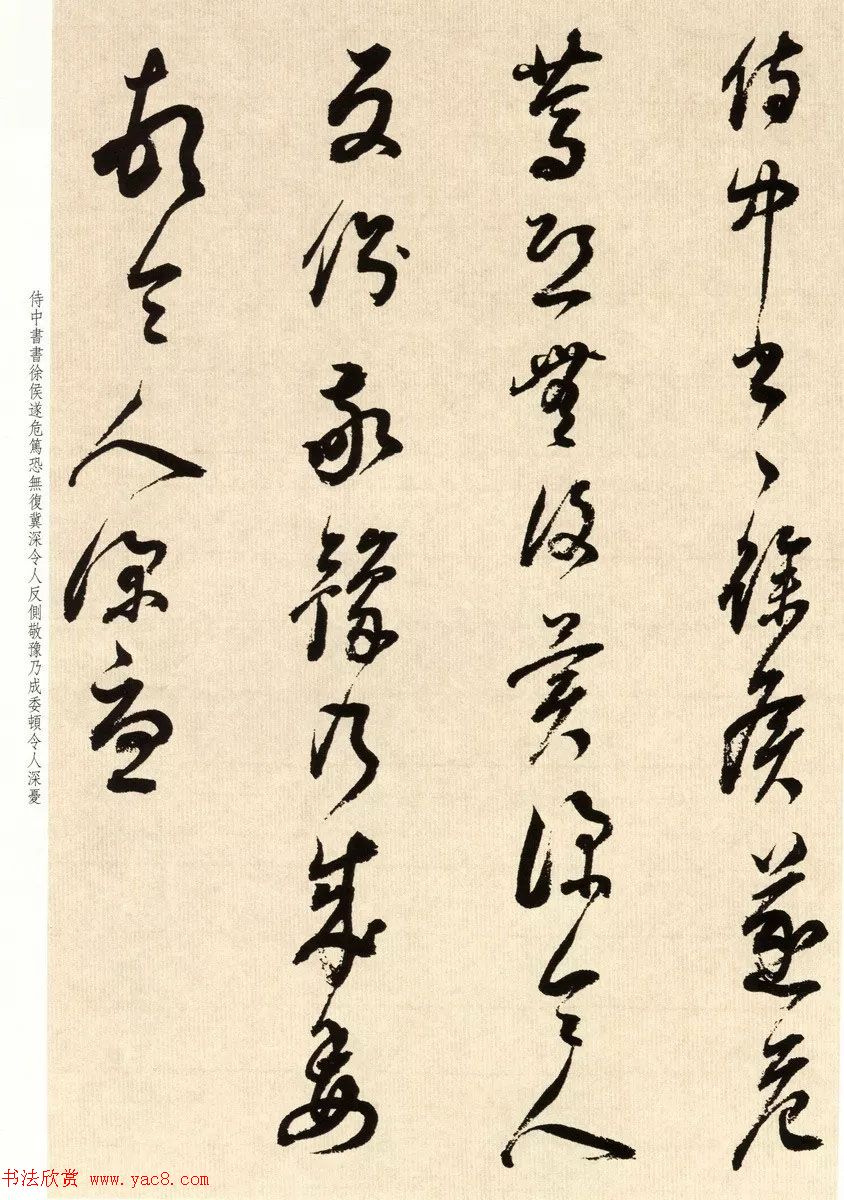 侍中書〻徐侯遂危
篤恐無復冀深令人
反側敬豫乃成委
頓令人深憂
侍中書書徐侯遂危篤恐無復冀深令人反側敬豫乃成委頓令人深憂
书法欣赏 www.yac8.com